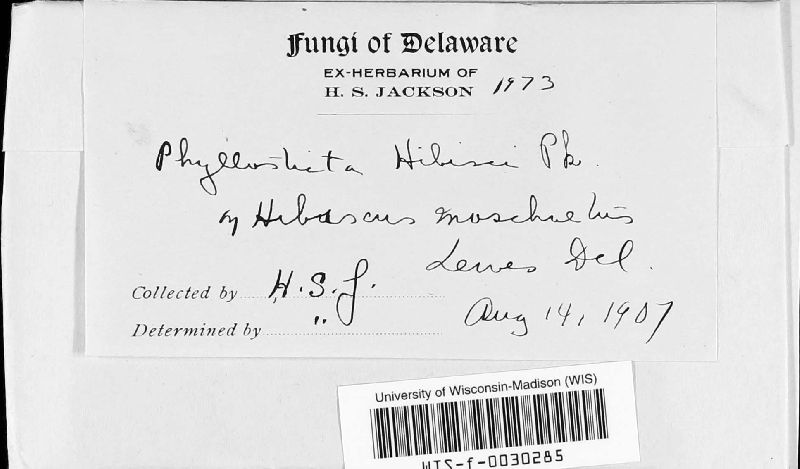 Fungi of Delaware
EX-HERBARIUM OF
H. S. JACKSON 1973
Phyllosticta Hibisci Pk.
on Hibiscus moscheutos
Lewes Del.
Collected by H. S. J.
Determined by "
Aug 14, 1907
University of Wisconsin-Madison (WIS)
WIS-f-0030285